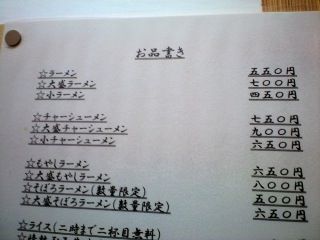 お品書き
☆ラーメン 五五０円
☆大盛ラーメン 七００円
☆小ラーメン 四五０円
☆チャーシューメン 七五０円
☆大盛チャーシューメン 九００円
☆小チャーシューメン 六五０円
☆もやしラーメン 六五０円
☆大盛もやしラーメン 八００円
☆そぼろラーメン(数量限定) 五五０円
☆大盛そぼろラーメン(数量限定) 六五０円
☆ライス(二時まで二杯目無料)